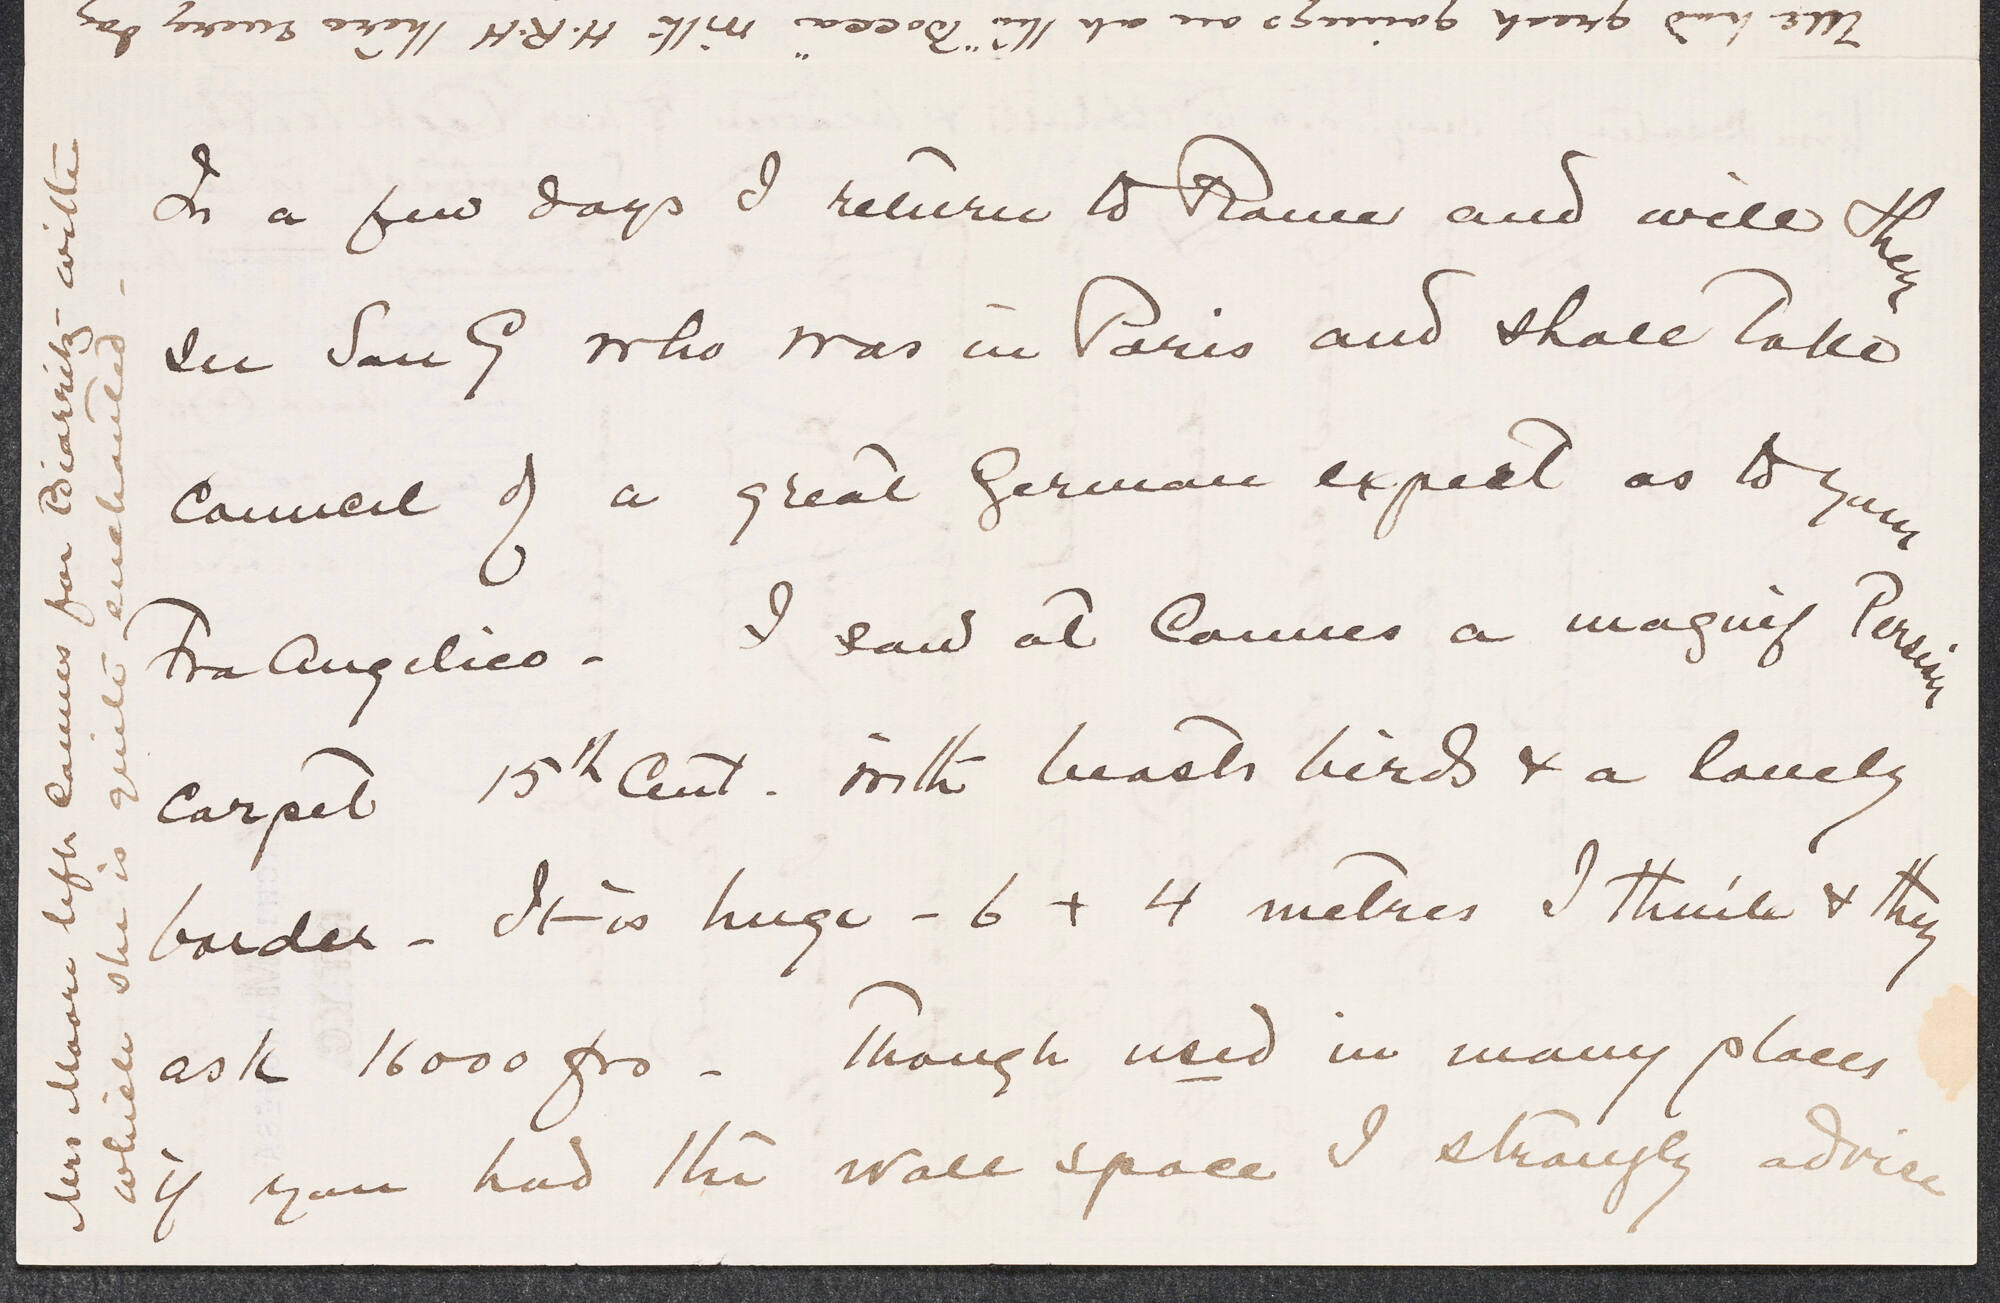 We had great goings on at the "Bocca" with H.R.H there every day
In a few days I return to Rome and will then
see San G who was in Paris and shall take
council of a great German expert as to your
Fra Angelico - I saw at Cannes a magnif Persian
carpet 15th Cent. with beasts birds & a lovely
border - It is huge - 6 + 4 metres I think & they
ask 16000 frs - Though used in many places
if you had the wall space I strongly advise
Mrs Moore left Cannes for Biarritz - with
which she is quite enchanted -